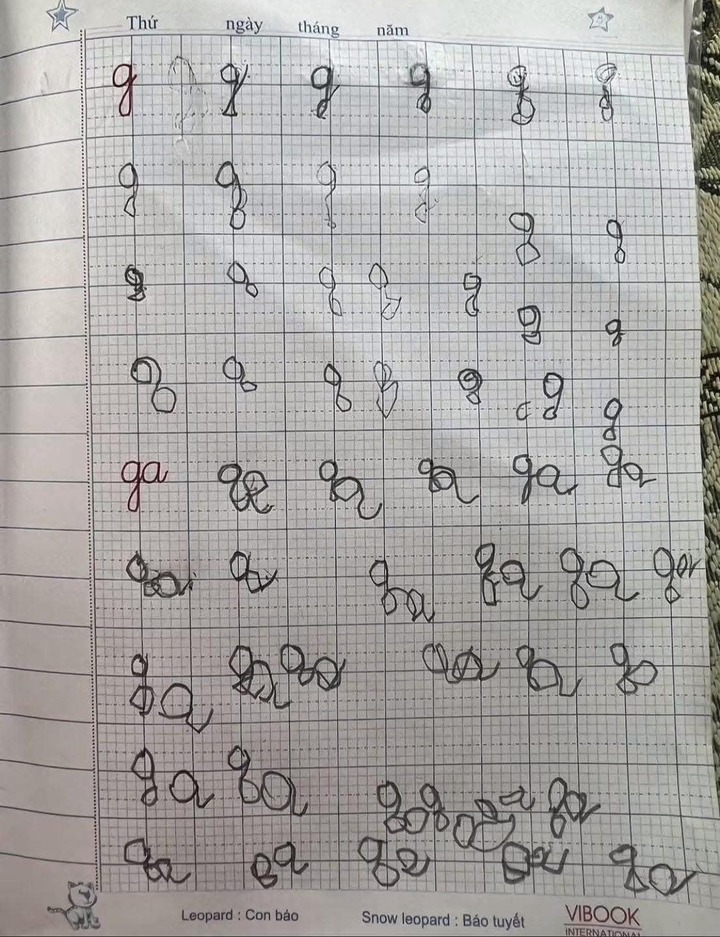 Thứ ngày tháng năm
g g g g g g
g g g g g g
g g g g g g g
g g g g g g g
ga ga ga ga ga ga
ga ga ga ga ga ga
ga ga ga ga ga
ga ga ga
ga ga ga ga ga
Leopard : Con báo Snow leopard : Báo tuyết VIBOOK
INTERNATIONAL